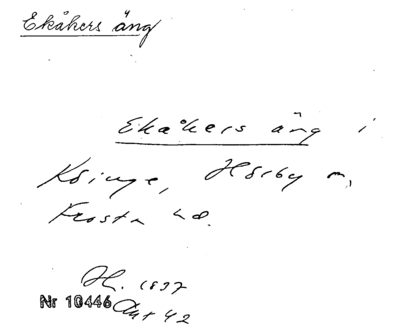 Ekåkers äng
Ekåkers äng i
Köinge, Hörby sn,
Frosta hd.
1837
Nr 10446 Akt 42